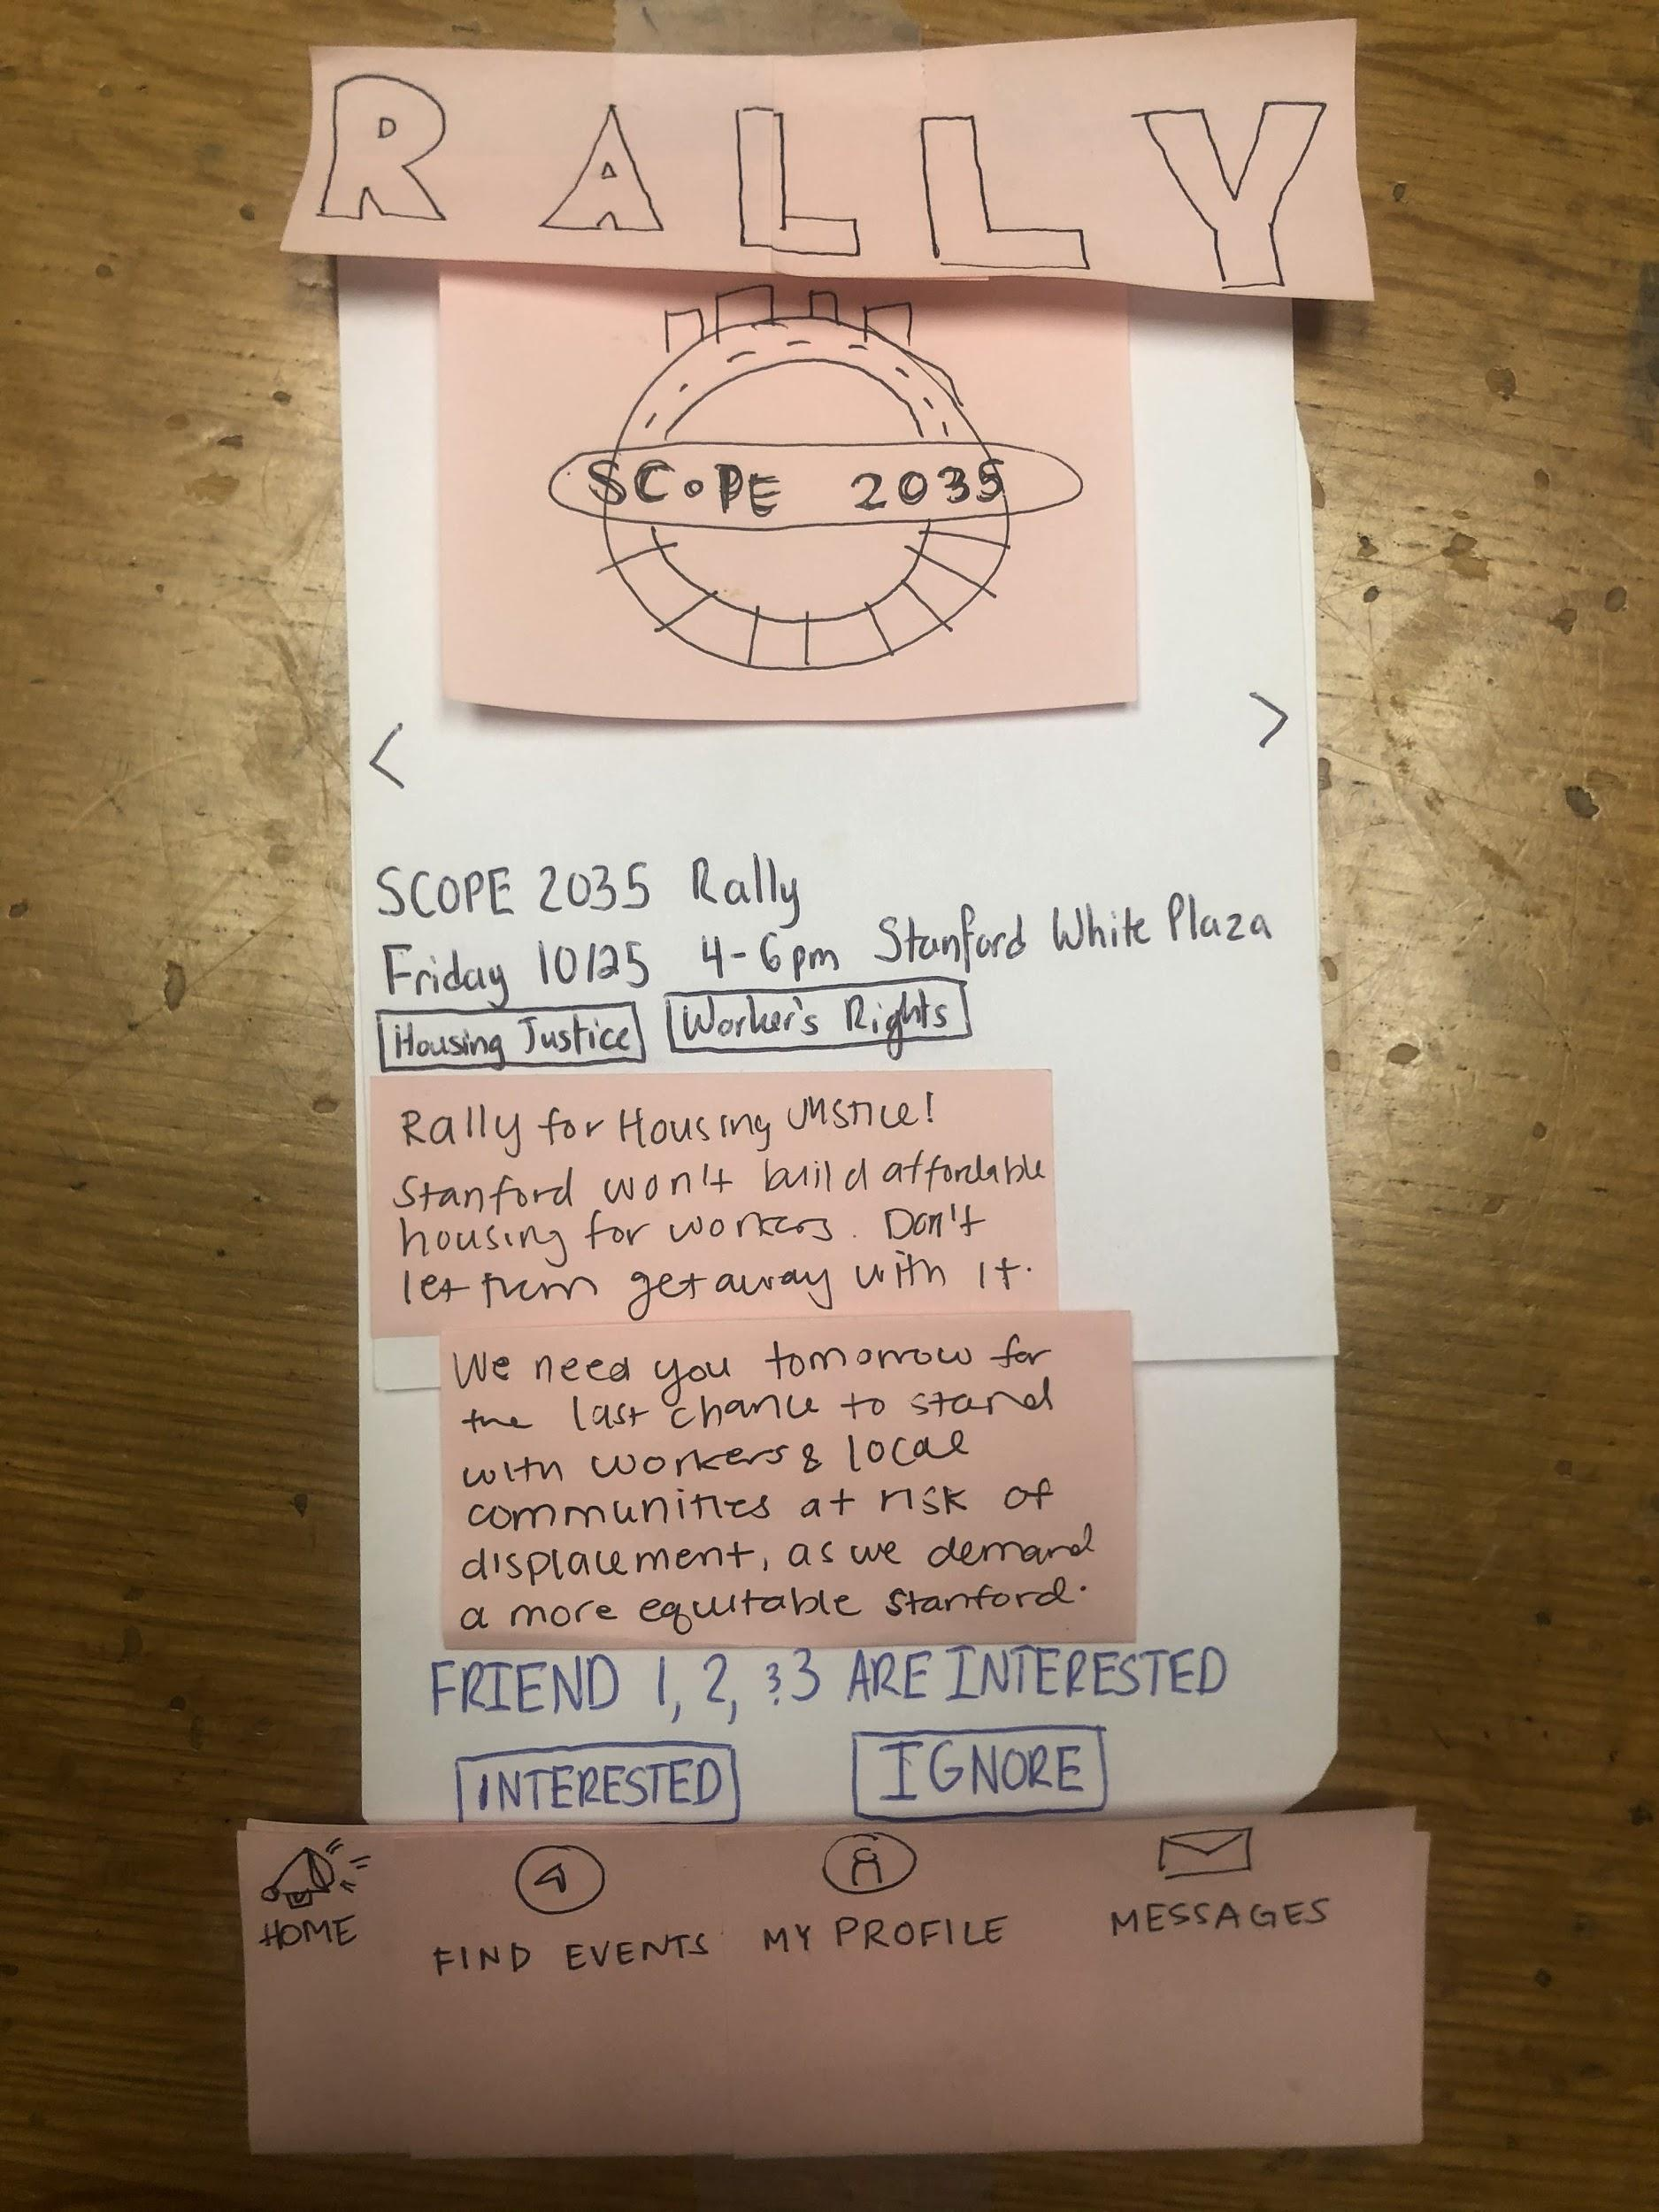 RALLY
SCOPE 2035
< >
SCOPE 2035 Rally
Friday 10/25 4-6pm Stanford White Plaza
Housing Justice Worker's Rights
Rally for Housing Justice!
Stanford won't build affordable
housing for workers. Don't
let them get away with it.
We need you tomorrow for
the last chance to stand
with workers & local
communities at risk of
displacement, as we demand
a more equitable Stanford.
FRIEND 1, 2, & 3 ARE INTERESTED
INTERESTED IGNORE
HOME FIND EVENTS MY PROFILE MESSAGES